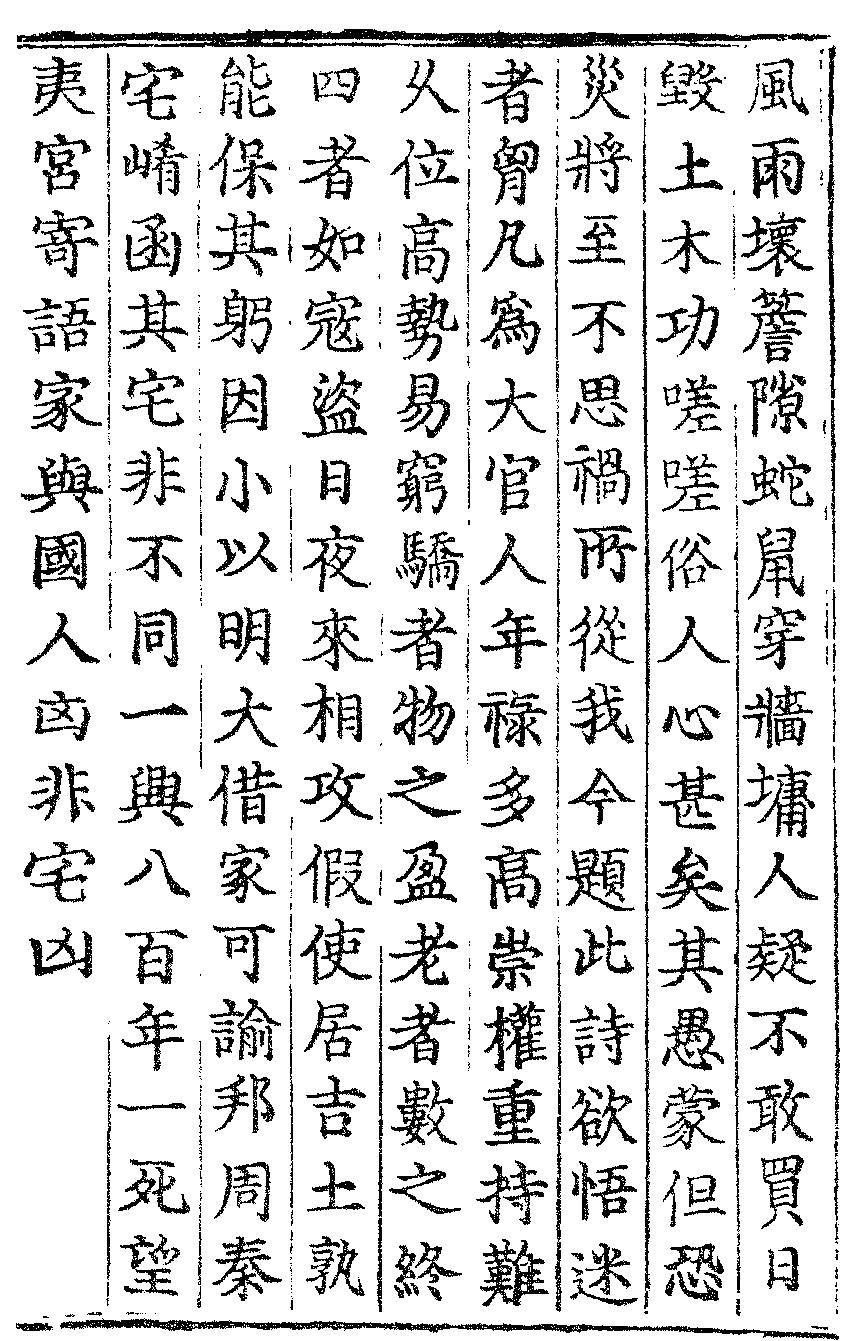 風雨壞簷隙蛇鼠穿牆墉人疑不敢買日
毀土木功嗟嗟俗人心甚矣其愚蒙但恐
災將至不思禍所從我今題此詩欲悟迷
者胷凡爲大官人年祿多高崇權重持難
乆位高勢易窮驕者物之盈老者數之終
四者如寇盜日夜來相攻假使居吉土孰
能保其躬因小以明大借家可諭邦周秦
宅崤函其宅非不同一興八百年一死望
夷宮寄語家與國人凶非宅凶